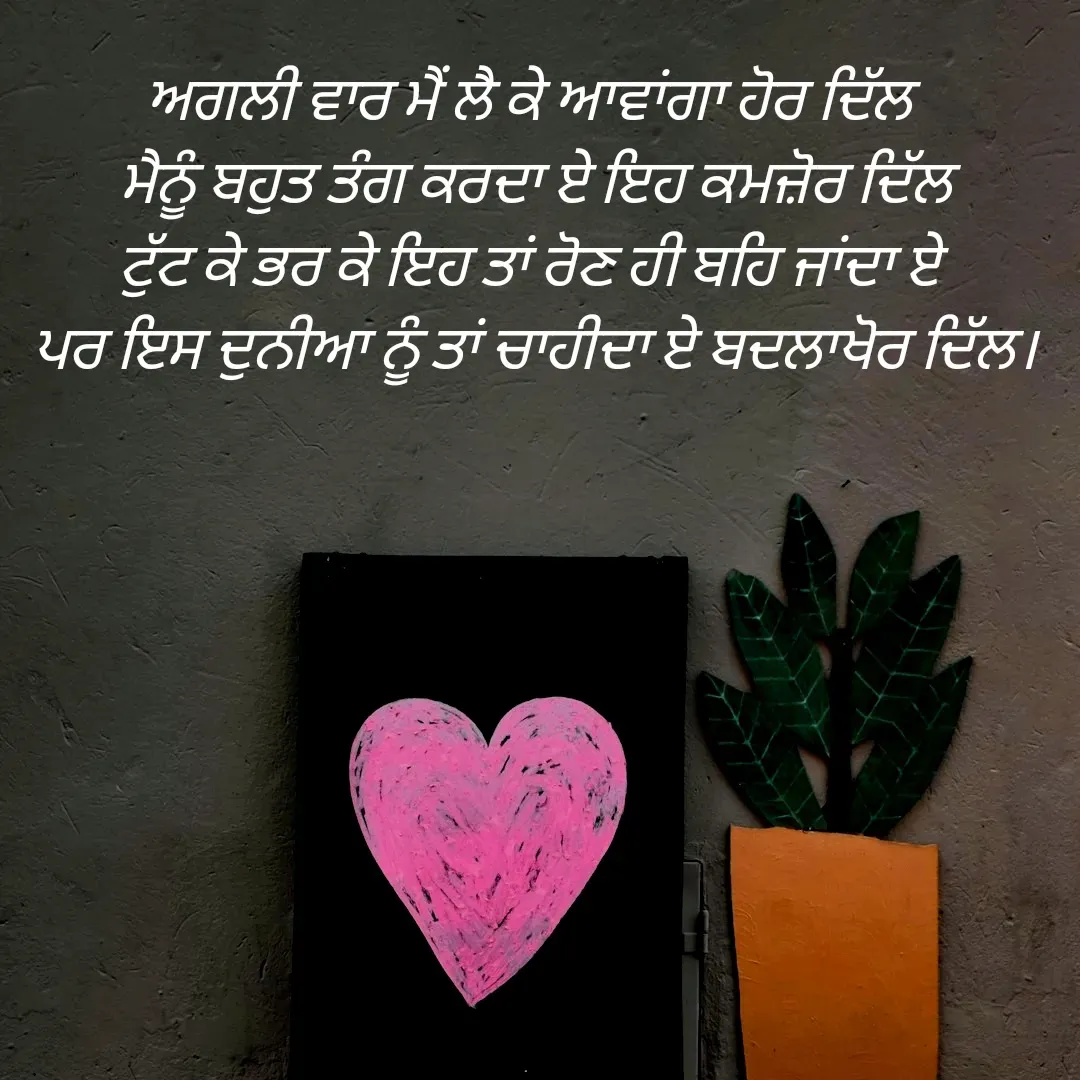 ਅਗਲੀ ਵਾਰ ਮੈਂ ਲੈ ਕੇ ਆਵਾਂਗਾ ਹੋਰ ਦਿੱਲ
ਮੈਨੂੰ ਬਹੁਤ ਤੰਗ ਕਰਦਾ ਏ ਇਹ ਕਮਜ਼ੋਰ ਦਿੱਲ
ਟੁੱਟ ਕੇ ਭਰ ਕੇ ਇਹ ਤਾਂ ਰੋਣ ਹੀ ਬਹਿ ਜਾਂਦਾ ਏ
ਪਰ ਇਸ ਦੁਨੀਆ ਨੂੰ ਤਾਂ ਚਾਹੀਦਾ ਏ ਬਦਲਾਖੋਰ ਦਿੱਲ।